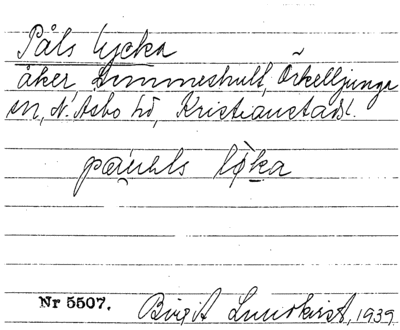 Påls lycka
åker, Simmeshult, Örkelljunga
sn, N. Åsbo hd, Kristianstads l.
pæuls løka
Nr 5507. Birgit Lundkvist, 1939.